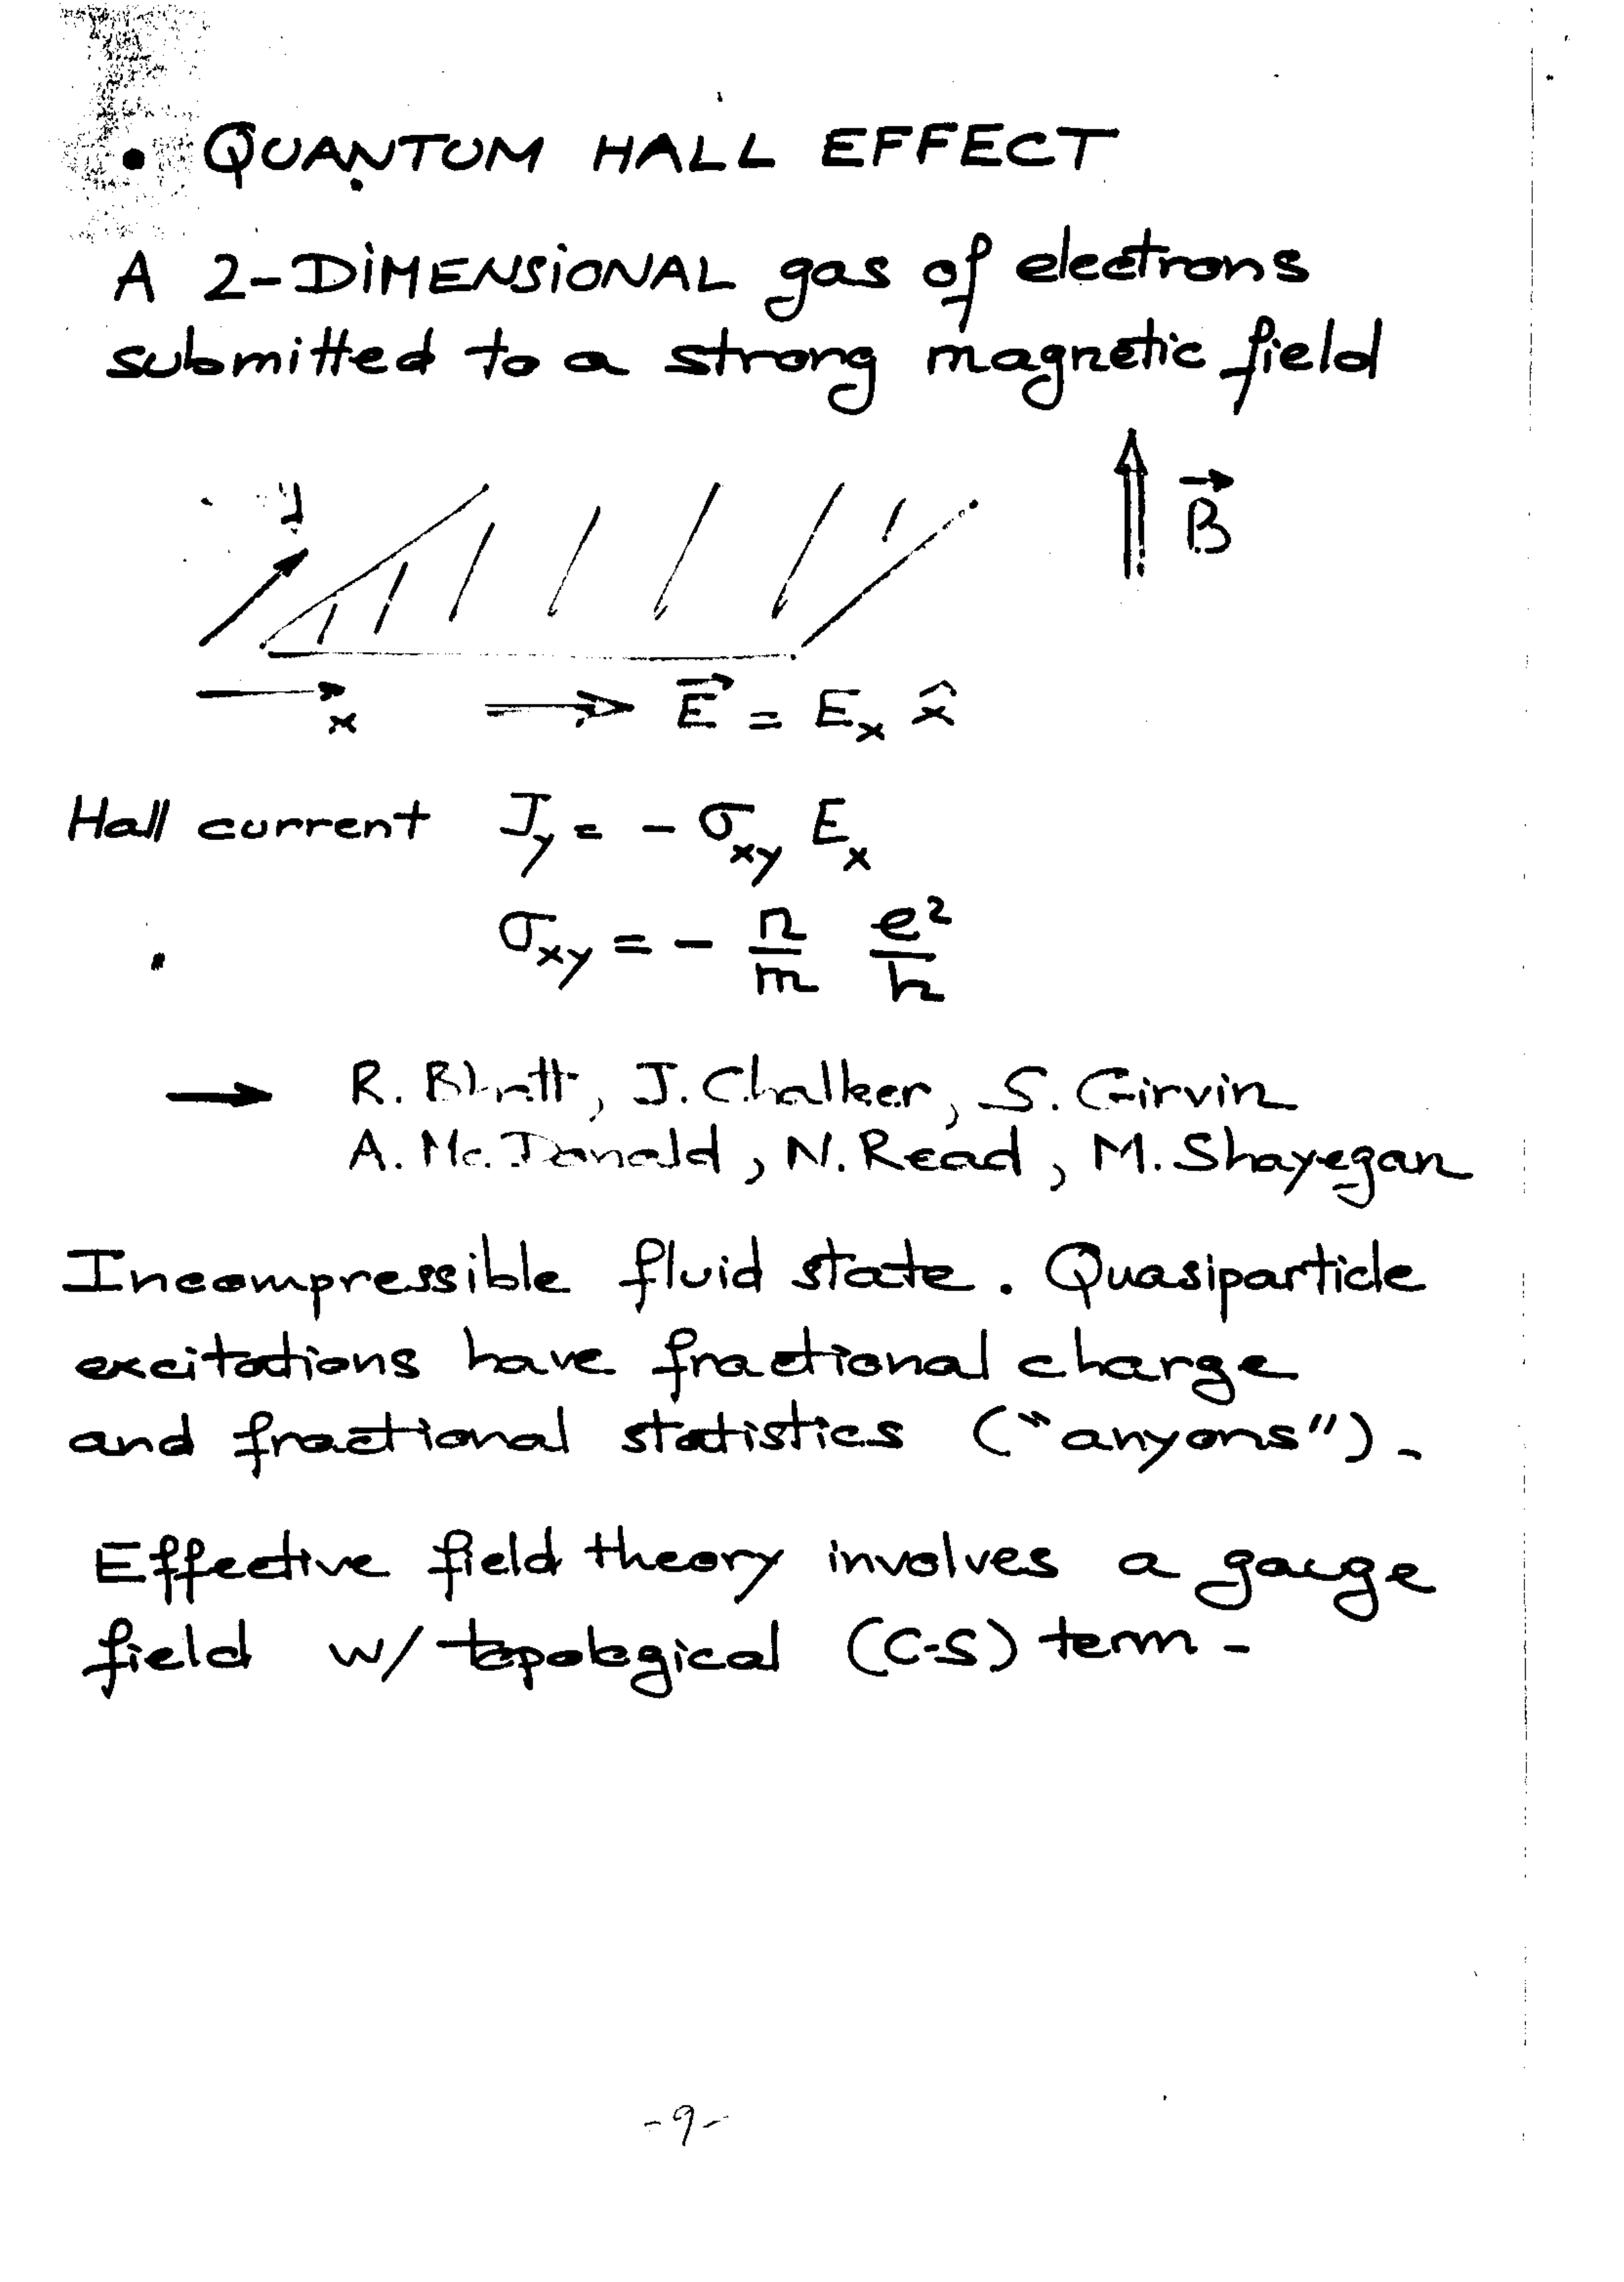 • QUANTUM HALL EFFECT
A 2-DIMENSIONAL gas of electrons
submitted to a strong magnetic field
y
B⃗
x ⟹ E⃗ = Eₓ x̂
Hall current J_y = - σ_xy E_x
σ_xy = - n/m e²/h
→ R. Bhatt, J. Chalker, S. Girvin
A. Mc. Donald, N. Read, M. Shayegan
Incompressible fluid state. Quasiparticle
excitations have fractional charge
and fractional statistics ("anyons").
Effective field theory involves a gauge
field w/ topological (C-S) term -
-9-